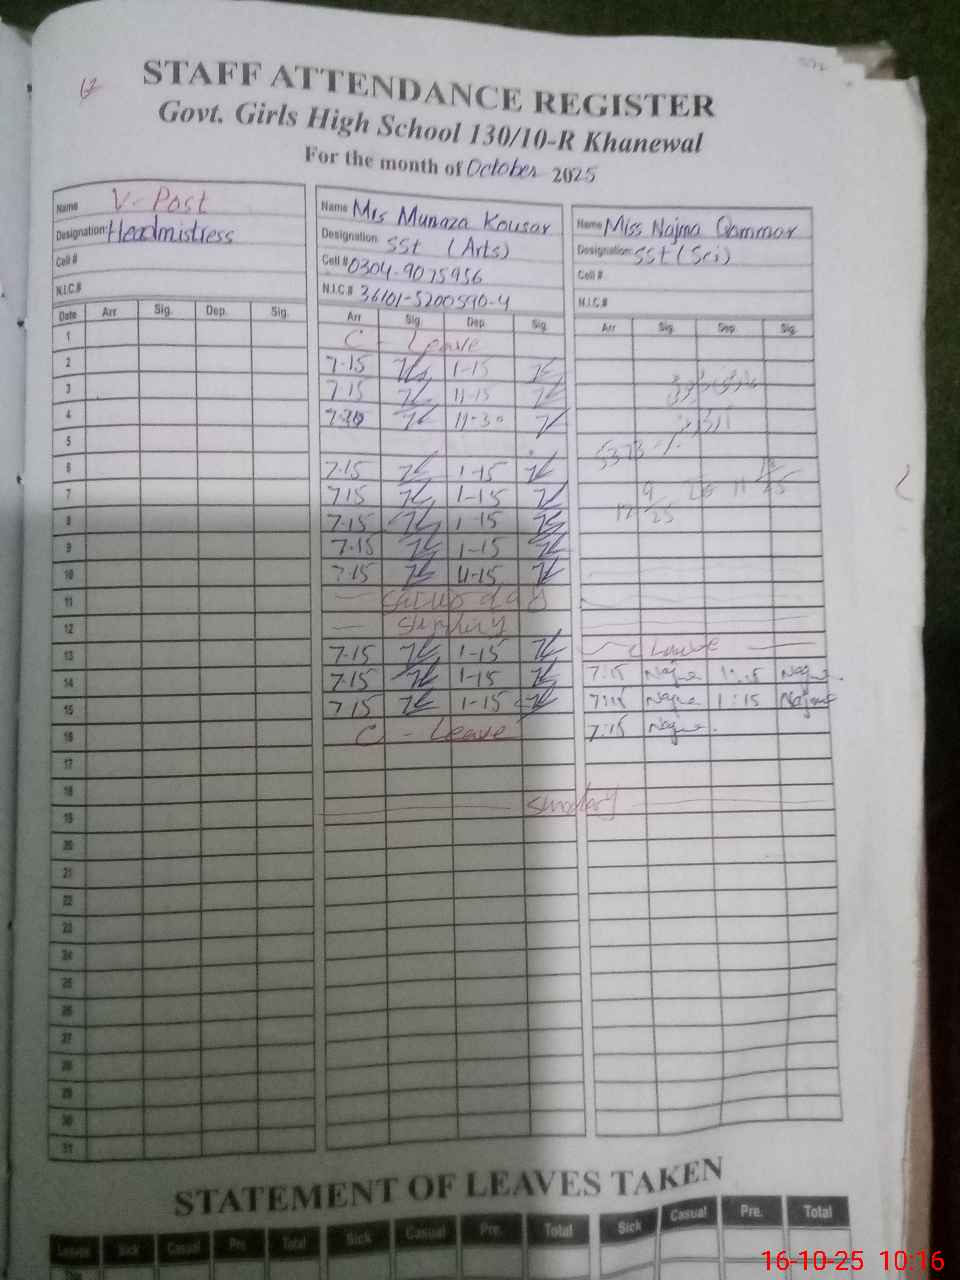 12
STAFF ATTENDANCE REGISTER
Govt. Girls High School 130/10-R Khanewal
For the month of October 2025
Name V-Post
Designation: Headmistress
Cell #
N.I.C.#
Name Mrs Munaza Kousar
Designation SSt (Arts)
Cell # 0304-9075956
N.I.C.# 36101-5200590-4
Name Miss Najma Qammar
Designation: SSt (Sci)
Cell #
N.I.C.#
Date Arr Sig. Dep. Sig. Arr Sig. Dep. Sig. Arr Sig. Dep. Sig.
1 C - Leave
2 7-15 1-15
3 7 15 11-15
4 11-30
5
6 7-15 1-15
7 7 15 1-15
8 7-15 1-15
9 7-15 1-15
10 7-15 11-15
11
12 Sunday
13 7-15 1-15 C Leave
14 7-15 1-15 7:15 Najma 1:15 Najma
15 7 15 1-15 7:15 Najma 1:15 Najma
16 C - Leave 7:15 Najma
17
18
19 Sunday
20
21
22
23
24
25
26
27
28
29
30
31
STATEMENT OF LEAVES TAKEN
Leaves Sick Casual Pre. Total Sick Casual Pre. Total Sick Casual Pre. Total
16-10-25 10:16